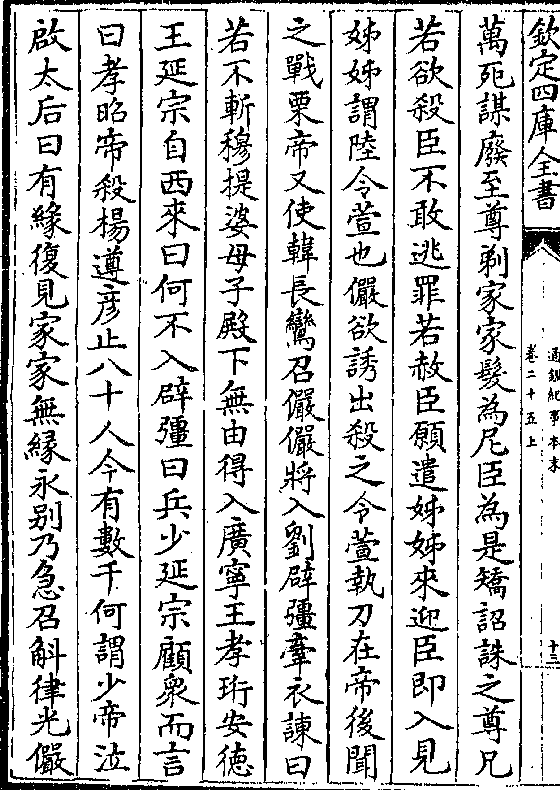 欽定四庫全書
通鑑紀事本末
卷二十五上
十三
萬死謀廢至尊剃家家髮為尼臣為是矯詔誅之尊兄
若欲殺臣不敢逃罪若赦臣願遣姊姊來迎臣即入見
姊姊謂陸令萱也儼欲誘出殺之令萱執刀在帝後聞
之戰栗帝又使韓長鸞召儼儼將入劉辟彊牽衣諫曰
若不斬穆提婆母子殿下無由得入廣寧王孝珩安德
王延宗自西來曰何不入辟彊曰兵少延宗顧衆而言
曰孝昭帝殺楊遵彦止八十人今有數千何謂少帝泣
啟太后曰有緣復見家家無緣永别乃急召斛律光儼